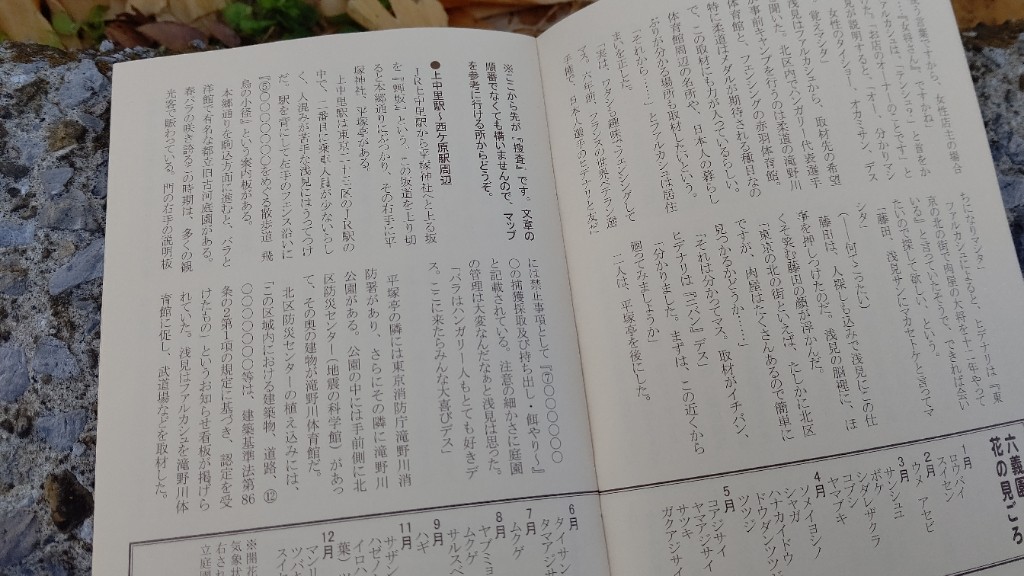 とまどう言葉ですから、女性店主の場合
は『女将さん』、ですかね」
「オカミサンは、『テンシュ?』と首をか
しげた。「お店のオーナーのことです」と浅
見が説明すると、「オー、分かりマシ
タ。女性のテイシュー、オカミサン、デス
ね。覚えマシタ」
浅見はファルカシュから、取材先の希望
を聞いた。北区内でハンガリー代表選手
が事前キャンプを行うのは柔道の滝野川
体育館と、フェンシングの赤羽体育館。
特に柔道はメダルが期待される種目なの
で、この取材にも力が入っているらしい。
体育館周辺の名所や、日本人の暮らし
ぶりが分かる場所も取材したいという。
「それから……」とファルカシュは居住
まいを正した。
「実は、ワタシも趣味でフェンシングして
マス。六年前、フランスの世界ベテラン選
手権で、日本人選手のヒデナリと友だ
ちになりマシタ」
ファルカシュによると、ヒデナリは「東
京の北の街で肉屋の大将を十二年やって
いる」と言っていたそうで、できれば会い
たいので探して欲しい、という。
「藤田、浅見サンにマカセトケと言ってマ
シタ」
(――何てこったい)
藤田は、人探しも込みで浅見にこの仕
事を押しつけたのだ。浅見の脳裡に、ほ
くそ笑む藤田の顔が浮かんだ。
「東京の北の街といえば、たしかに北区
ですが、肉屋はたくさんあるので簡単に
見つかるかどうか……」
「それは分かってマス。取材がイチバン、
ヒデナリは『ニバン』デス」
「分かりました。まずは、この近くから
廻ってみましょうか」
二人は、平塚亭を後にした。
六義園
花の見ごろ
1月
ロウバイ
スイセン
2月
ウメ アセビ
3月
サンシュユ
ボケ
シダレザクラ
コブシ
ヤマブキ
4月
ソメイヨシノ
シャガ
ハナカイドウ
ドウダンツツジ
ツツジ
5月
コアジサイ
ヤマアジサイ
サツキ
ガクアジサイ
※ここから先が、「捜査」です。文章の
順番でなくても構いませんので、マップ
を参考に行ける所からどうぞ。
●上中里駅～西ケ原駅周辺
JR上中里駅から平塚神社へと上る坂
を『⑪坂』という。この坂道を上り切
ると本郷通りにぶつかり、その右手に平
塚神社、平塚亭がある。
上中里駅は東京二十三区のJR駅の
中で、二番目に乗車人員が少ないらし
く、人混みが苦手な浅見にはうってつけ
だ。駅を背にして左手のフェンス沿いに
『⑤〇〇〇〇〇〇をめぐる散歩道 飛
鳥の小径』という案内板がある。
本郷通りを駒込方面に進むと、バラと
洋館で有名な都立旧古河庭園がある。
春バラの咲き誇るこの時期は、多くの観
光客で賑わっている。門の右手の説明板
には禁止事項として『⑦〇〇〇〇〇〇
〇の捕獲採取及び持ち出し・餌やり〈』
と記載されている。注意の細かさに庭園
の管理は大変なんだなぁと浅見は思った。
「バラはハンガリー人もとても好きデ
ス。ここに来たらみんな大喜びデス」
平塚亭の隣には東京消防庁滝野川消
防署があり、さらにその隣に滝野川
公園がある。公園の中には手前側に北
区防災センター(地震の科学館)があっ
て、その奥の建物が滝野川体育館だ。
北区防災センターの植え込みには、
「この区域内における建築物、道路、⑫
〇〇〇〇〇〇等は、建築基準法第86
条の2第1項の規定に基づき、認定を受
けたもの)というお知らせ看板が掲げら
れていた。浅見はファルカシュを滝野川体
育館に促し、武道場などを取材した。
6月
タイサン
タマアジサイ
7月
ムクゲ
ヤブミョ
8月
ムクゲ
サルスベ
9月
ハギ
11月
サザン
ハゼノ
イロハ
葉)ツ
12月
マンリ
ツバキ
スイセ
※開花
気象状
右され
立庭園